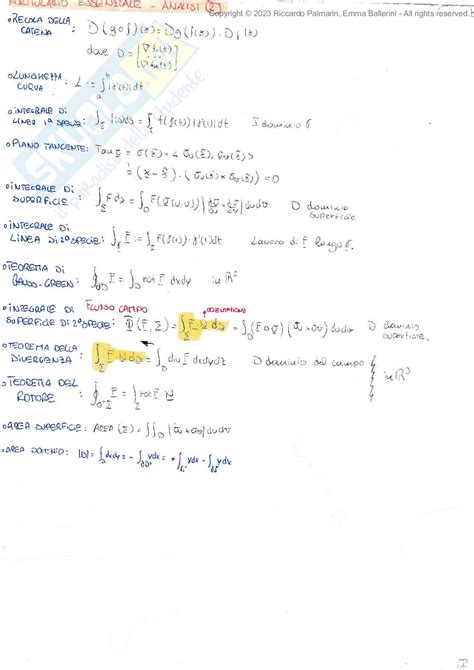 FORMULARIO ESSENZIALE - ANALISI (2)
Copyright © 2023 Riccardo Palmarin, Emma Ballerini - All rights reserved.
• REGOLA DELLA CATENA: D(g∘f)(x) = Dg(f(x)) · Df(x)
dove D = [∇f₁(x) ⋮ ∇fₘ(x)]
• LUNGHEZZA CURVA: L := ∫ₐᵇ |γ'(t)| dt
• INTEGRALE DI LINEA 1ª SPECIE: ∫ f(x) ds = ∫_I f(γ(t)) |γ'(t)| dt I dominio γ
• PIANO TANGENTE:
= (x - x̄) · (σᵤ(x̄) × σᵥ(x̄)) = 0
• INTEGRALE DI SUPERFICIE: ∫_Σ F ds = ∫_D F(σ(u,v)) |∂σ/∂u × ∂σ/∂v| du dv D dominio superficie
• INTEGRALE DI LINEA DI 2ª SPECIE: ∫_γ F := ∫_I F(γ(t)) · γ'(t) dt Lavoro di F lungo γ.
• TEOREMA DI GAUSS-GREEN: ∮ F = ∫_D rot F dxdy in ℝ²
• INTEGRALE DI FLUSSO CAMPO
SUPERFICIE DI 2ª SPECIE: Φ(F, Σ) = ∫_Σ F · N ds = ∫_D (F∘σ)(σᵤ × σᵥ) du dv D dominio superficie.
• TEOREMA DELLA DIVERGENZA: ∫_Σ F · N ds = ∫_D div F dxdydz D dominio del campo in ℝ³
• TEOREMA DEL ROTORE: ∮ F = ∫_Σ rot F · N
• AREA SUPERFICIE: AREA (Σ) = ∫∫_D |σᵤ × σᵥ| du dv
• AREA DOMINIO: |D| = ∫_D dxdy = - ∫ y dx